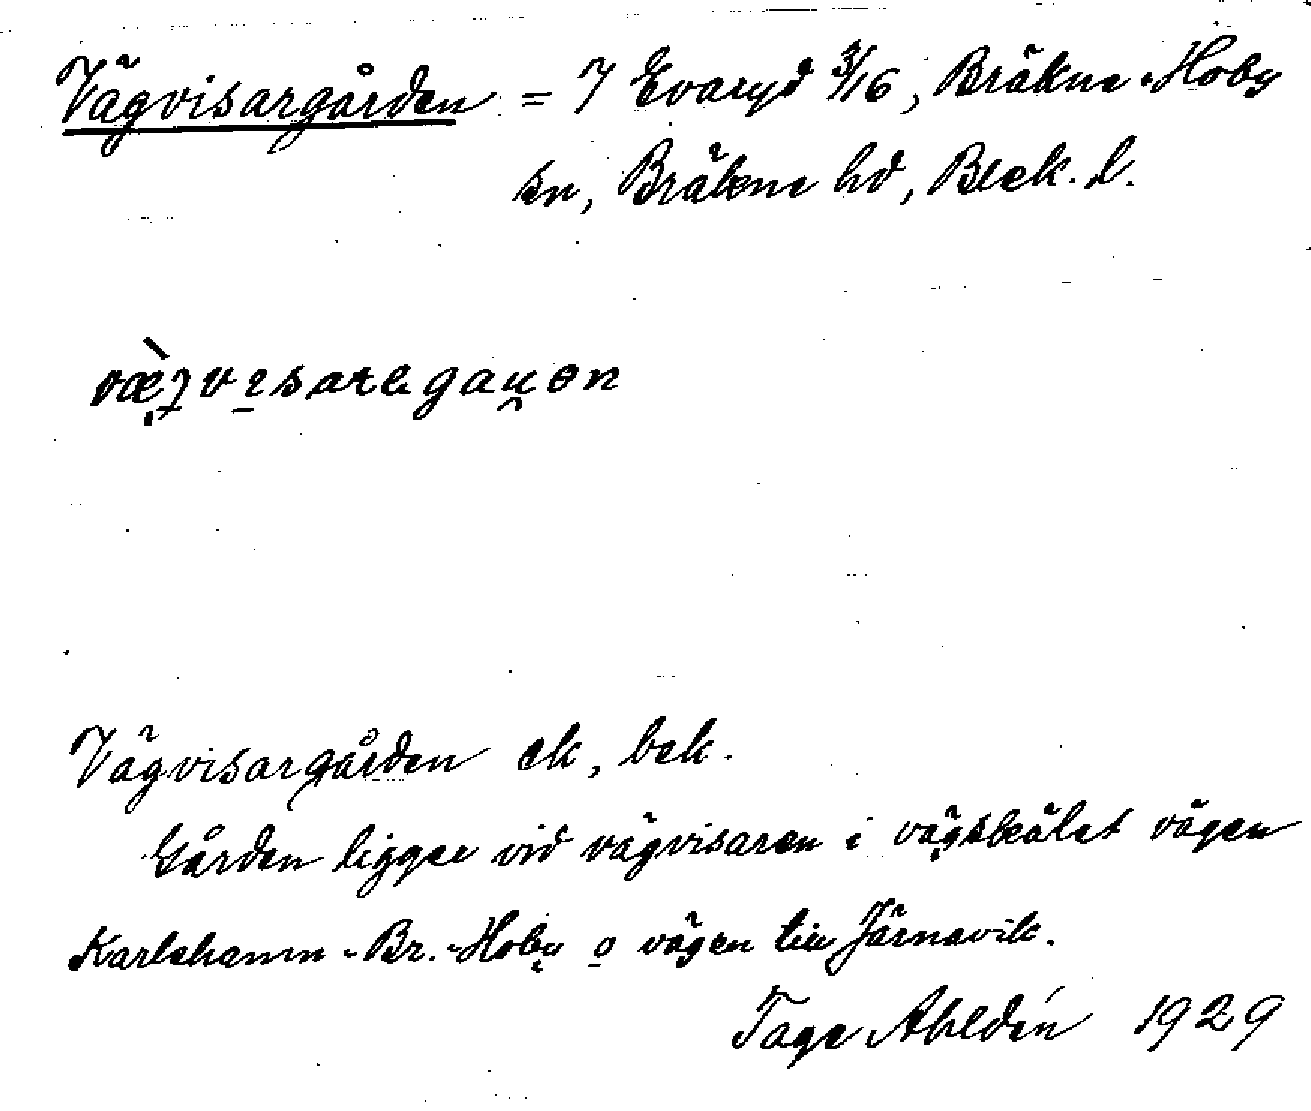 Vägvisargården = 7 Evaryd 3/16, Bräkne-Hoby
sn, Bräkne hd, Blek. l.
Vägvisargården ek, bek.
Gården ligger vid vägvisaren i vägskälet vägen
Karlshamn-Br.-Hoby o vägen till Järnavik.
Tage Ahldén 1929